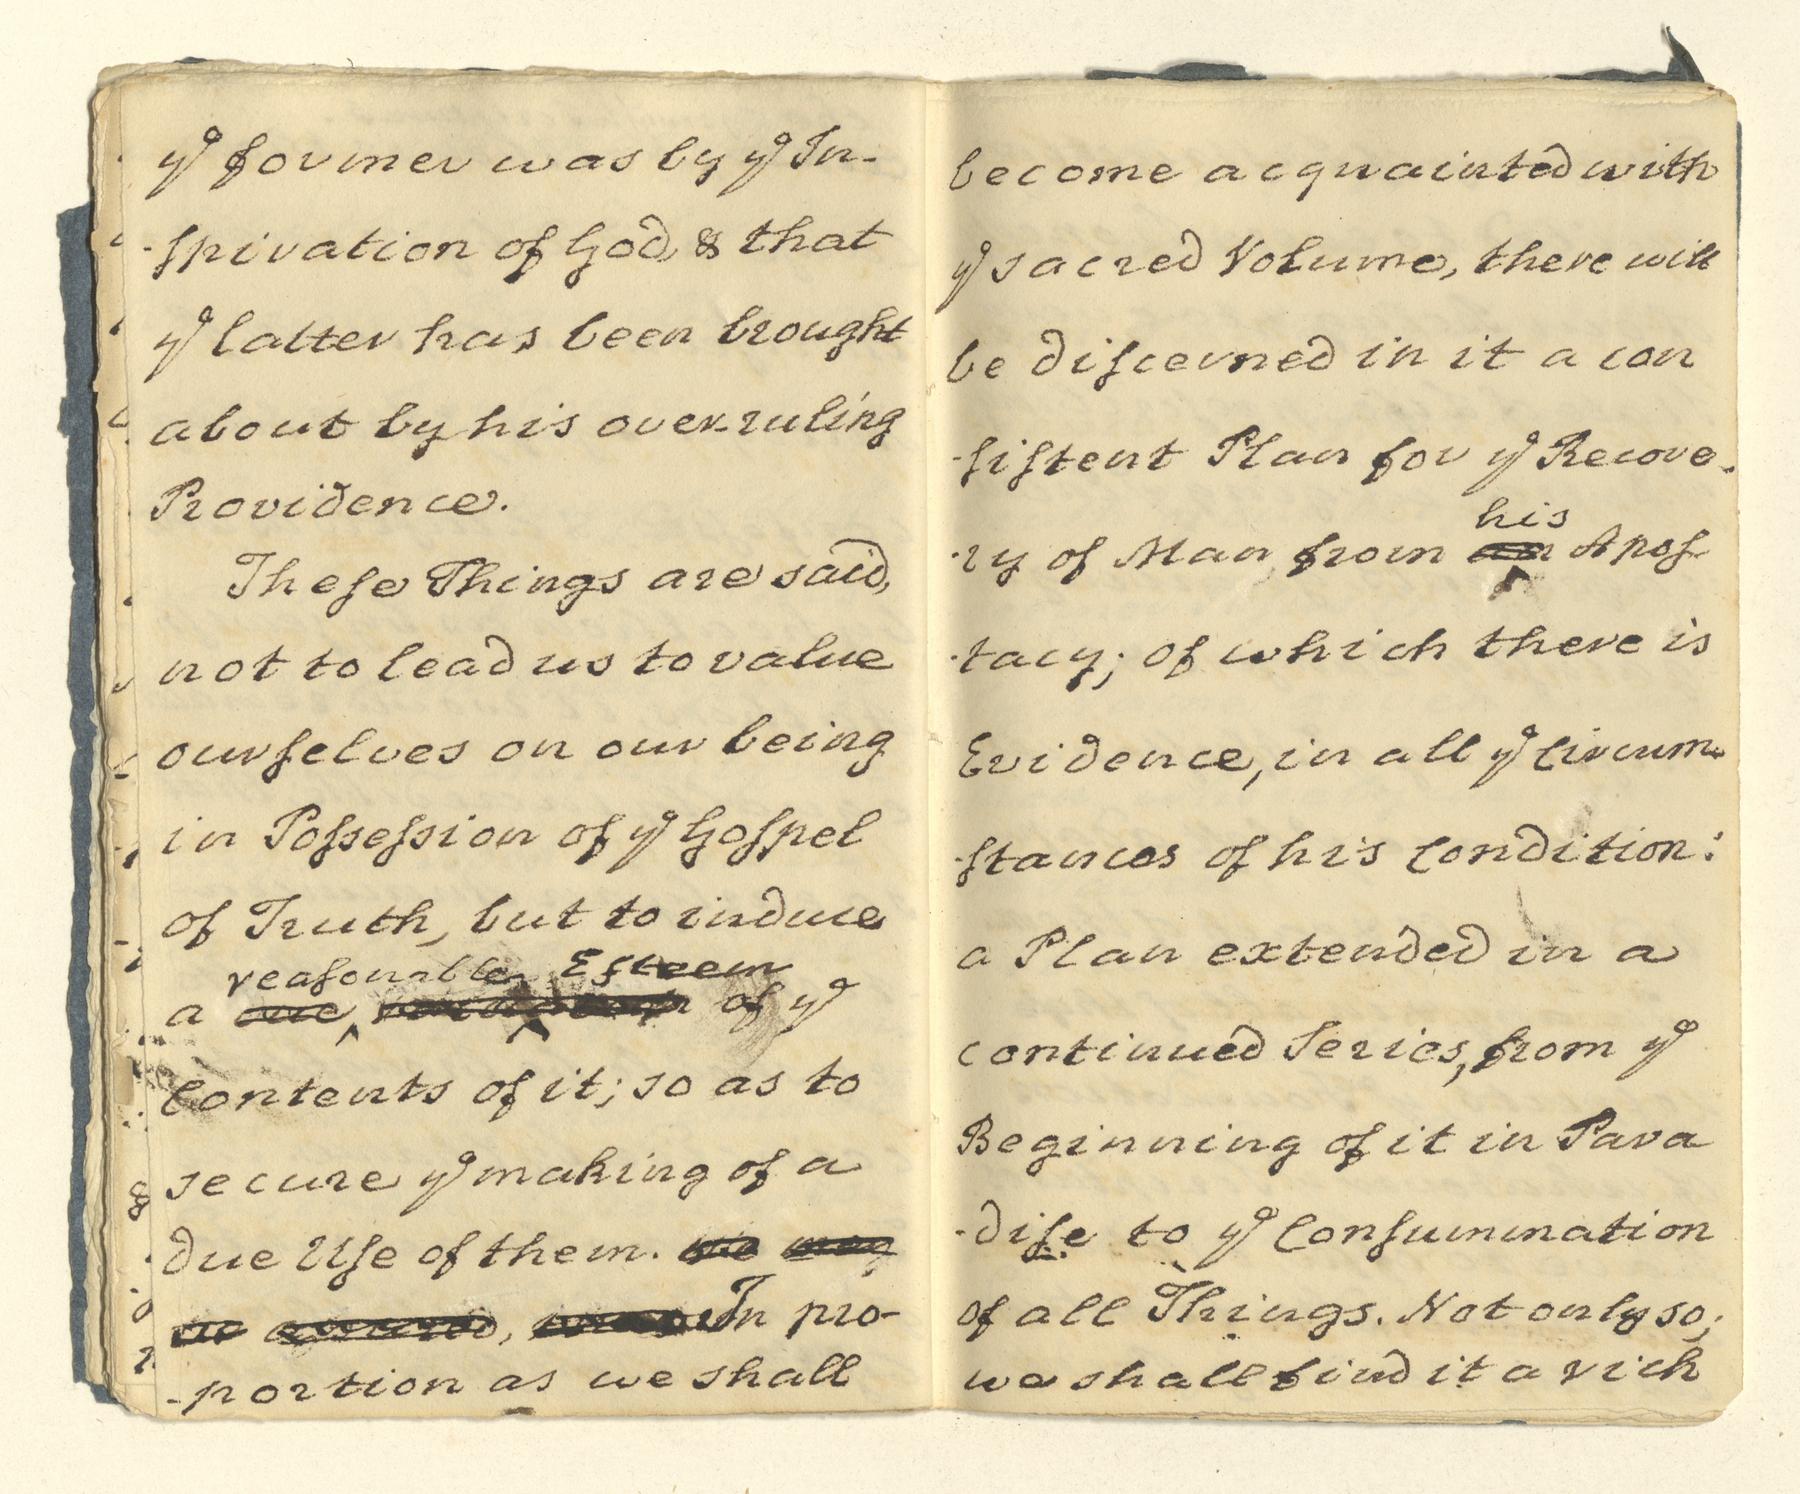 yᵉ former was by yᵉ In-
-ſpiration of God, & that
yᵉ latter has been brought
about by his over-ruling
Providence.
Theſe Things are said,
not to lead us to value
ourſelves on our being
in Poſseſsion of yᵉ Goſpel
of Truth, but to induce
reaſonable Eſteem
a of yᵉ
Contents of it; so as to
secure yᵉ making of a
due Uſe of them. we may
In pro-
-portion as we shall
become acquainted with
yᵉ sacred Volume, there will
be diſcerned in it a con
-ſiſtent Plan for yᵉ Recove-
his
-ry of Man from an Apoſ-
-tacy; of which there is
Evidence, in all yᵉ Circum-
-ſtances of his Condition:
a Plan extended in a
continued Series, from yᵉ
Beginning of it in Para
-diſe to yᵉ Conſummation
of all Things. Not only so;
we shall find it a rich